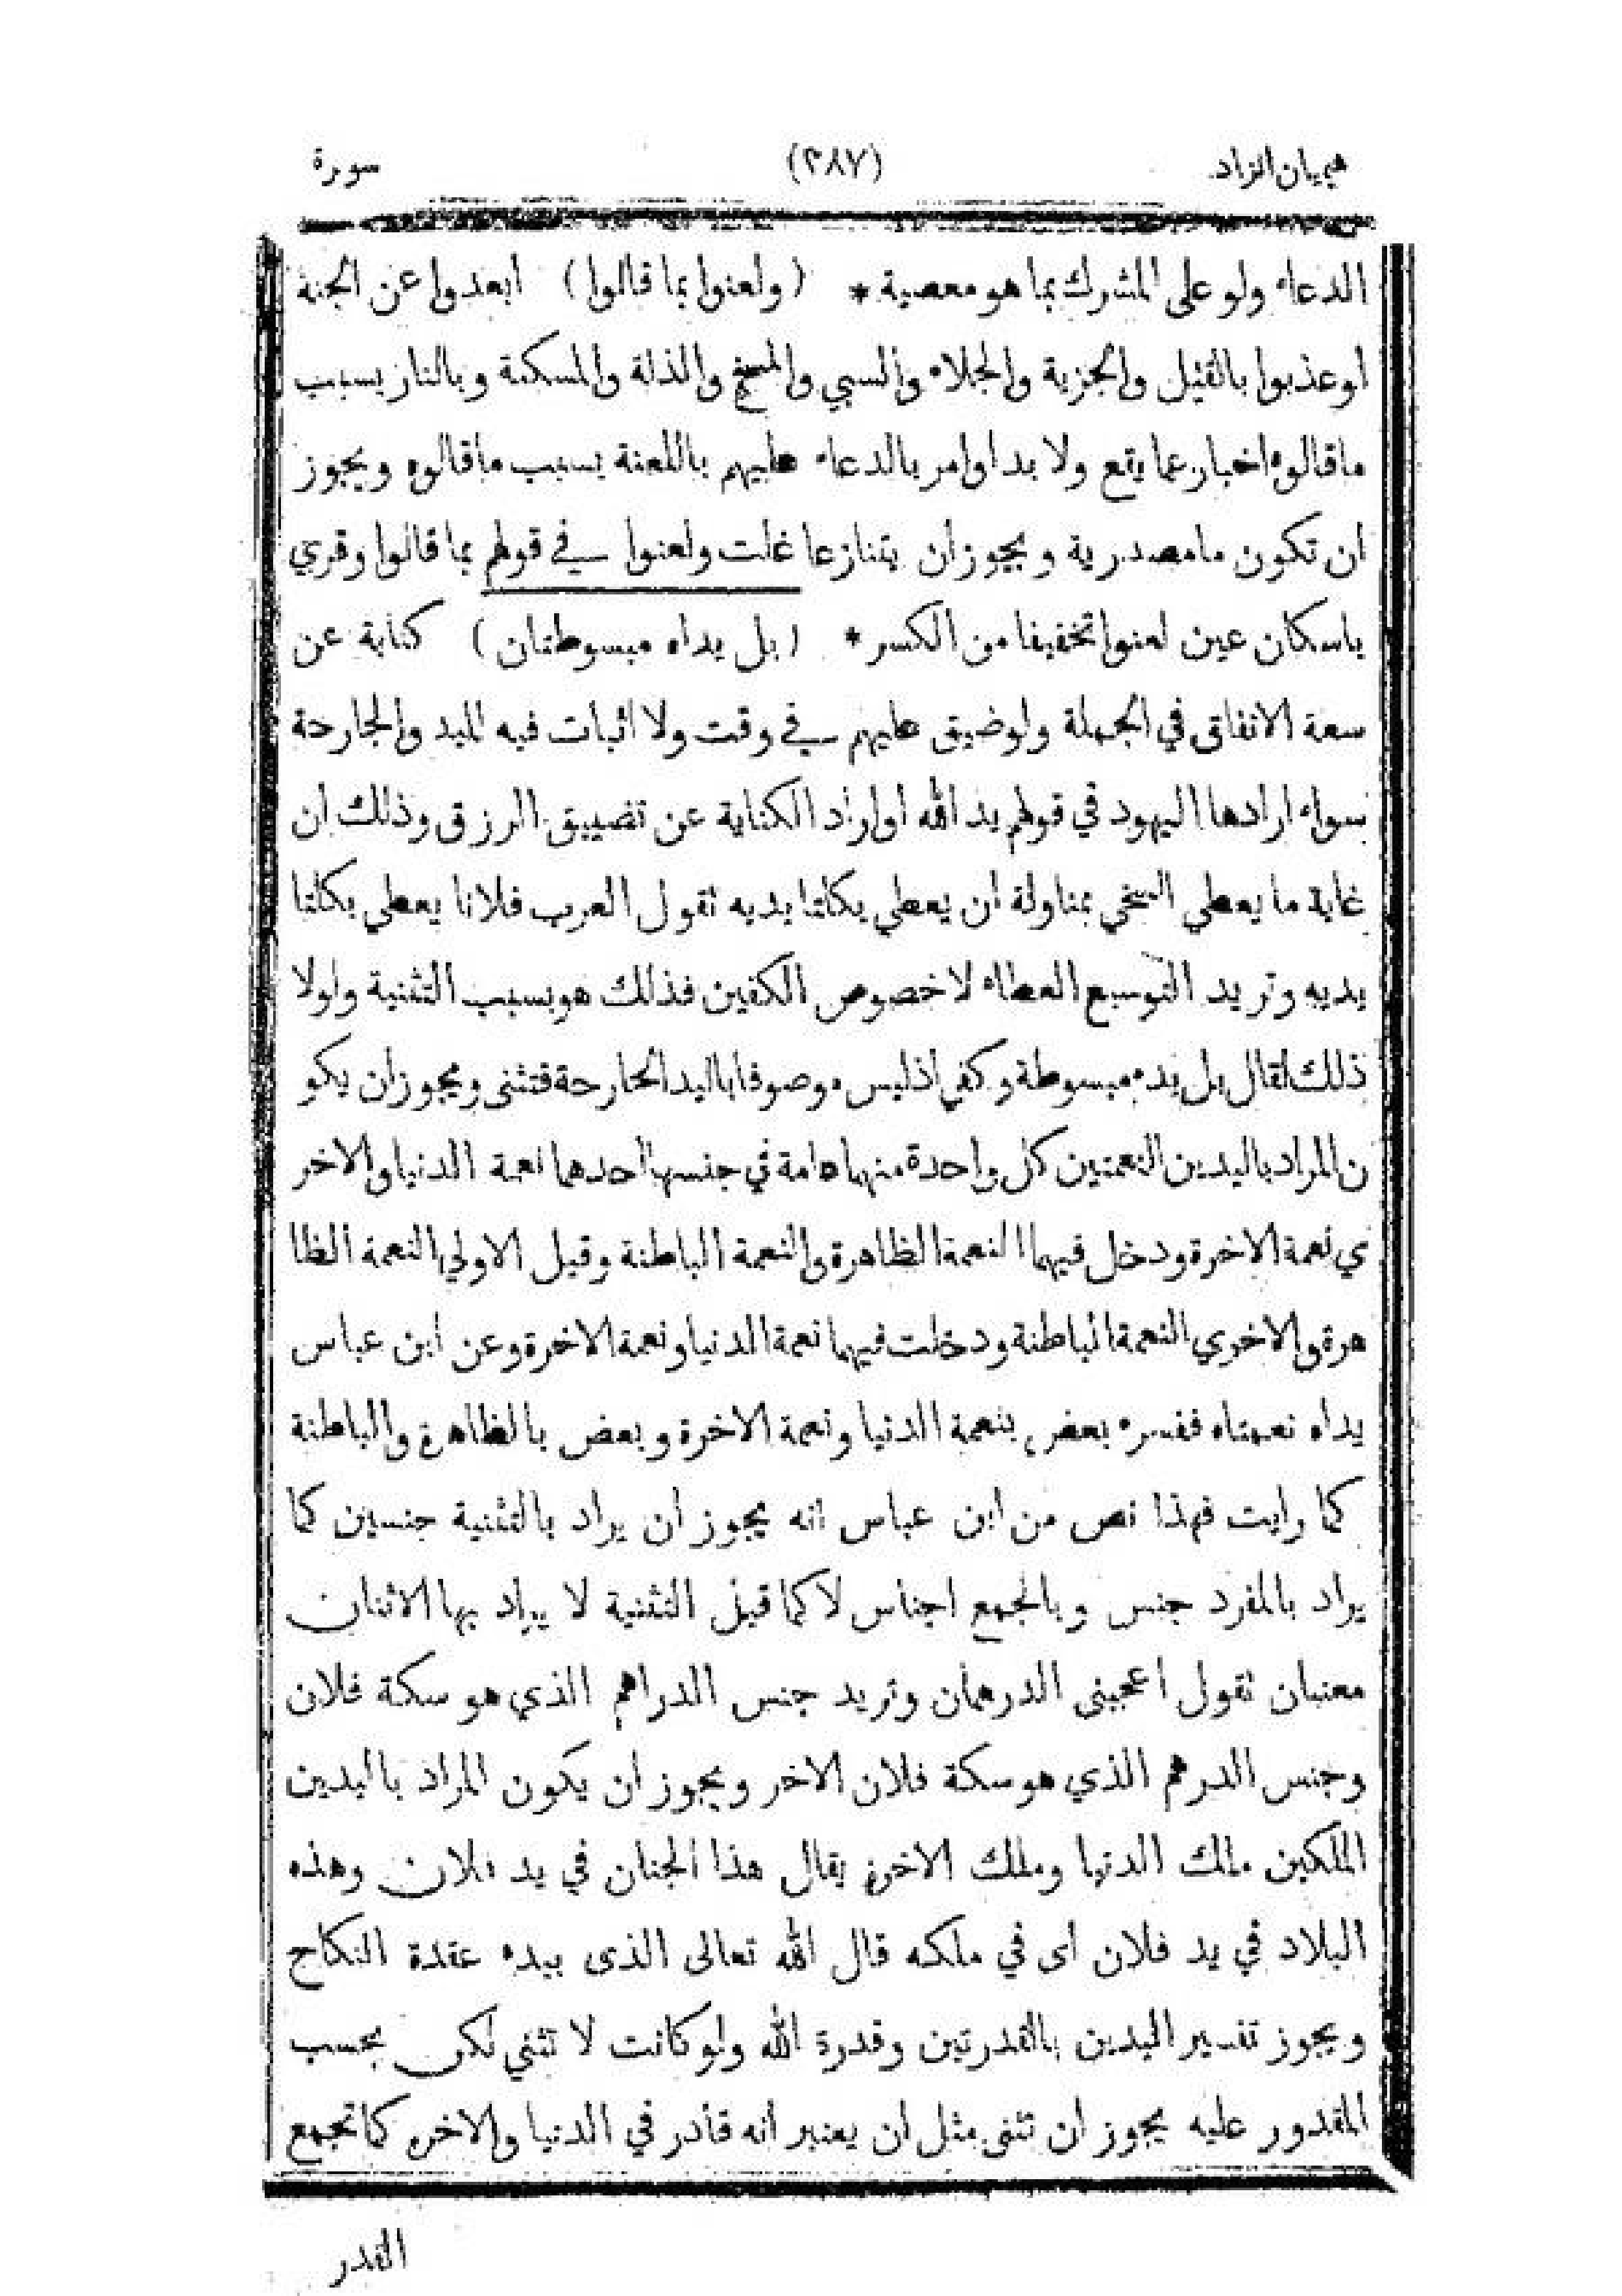 هميان الزاد (٣٨٧) سورة
الدعاء ولو على المشرك بما هو معصية * (ولعنوا بما قالوا) ابعدوا عن الجنة
او عذبوا بالقتل والجزية والجلاء والسبي والمسخ والذلة والمسكنة وبالنار بسبب
ما قالوه اخبار عما يقع ولا بد او امر بالدعاء عليهم باللعنة بسبب ما قالوه ويجوز
ان تكون ما مصدرية ويجوز أن يتنازعا غلت ولعنوا في قولهم بما قالوا وقرئ
باسكان عين لعنوا تخفيفا من الكسر * (بل يداه مبسوطتان) كناية عن
سعة الانفاق في الجملة ولو ضيق عليهم في وقت ولا اثبات فيه لليد والجارحة
سواء ارادها اليهود في قولهم يد الله او اراد الكناية عن تضييق الرزق وذلك ان
غاية ما يعطي السخي بمناولة ان يعطي بكلتا يديه تقول العرب فلانا يعطي بكلتا
يديه وتريد التوسيع العطاء لا خصوص الكفين فذلك هو بسبب التثنية ولولا
ذلك لقال بل يده مبسوطة وكفي اذ ليس موصوفا باليد الجارحة فتثنى ويجوز ان يكو
ن المراد باليدين النعمتين كل واحدة منهما عامة في جنسها احدهما نعمة الدنيا والاخر
ي نعمة الاخرة ودخل فيهما النعمة الظاهرة والنعمة الباطنة وقيل الاولي النعمة الظا
هرة والاخري النعمة الباطنة ودخلت فيهما نعمة الدنيا ونعمة الاخرة وعن ابن عباس
يداه نعمتاه ففسره بعض بنعمة الدنيا ونعمة الاخرة وبعض بالظاهرة والباطنة
كما رايت فهذا نص من ابن عباس انه يجوز ان يراد بالتثنية جنسين كما
يراد بالمفرد جنس وبالجمع اجناس لا كما قيل التثنية لا يراد بها الاثنان
معنيان تقول اعجبنى الدرهمان وتريد جنس الدراهم الذي هو سكة فلان
وجنس الدرهم الذي هو سكة فلان الاخر ويجوز ان يكون المراد باليدين
الملكين ملك الدنيا وملك الاخرة يقال هذا الجنان في يد فلان وهذه
البلاد في يد فلان اى في ملكه قال الله تعالى الذى بيده عقدة النكاح
ويجوز تفسير اليدين بالقدرتين وقدرة الله ولو كانت لا تثني لكن بحسب
المقدور عليه يجوز ان تثنى مثل ان يعتبر انه قادر في الدنيا والاخره كما تجمع
القدر